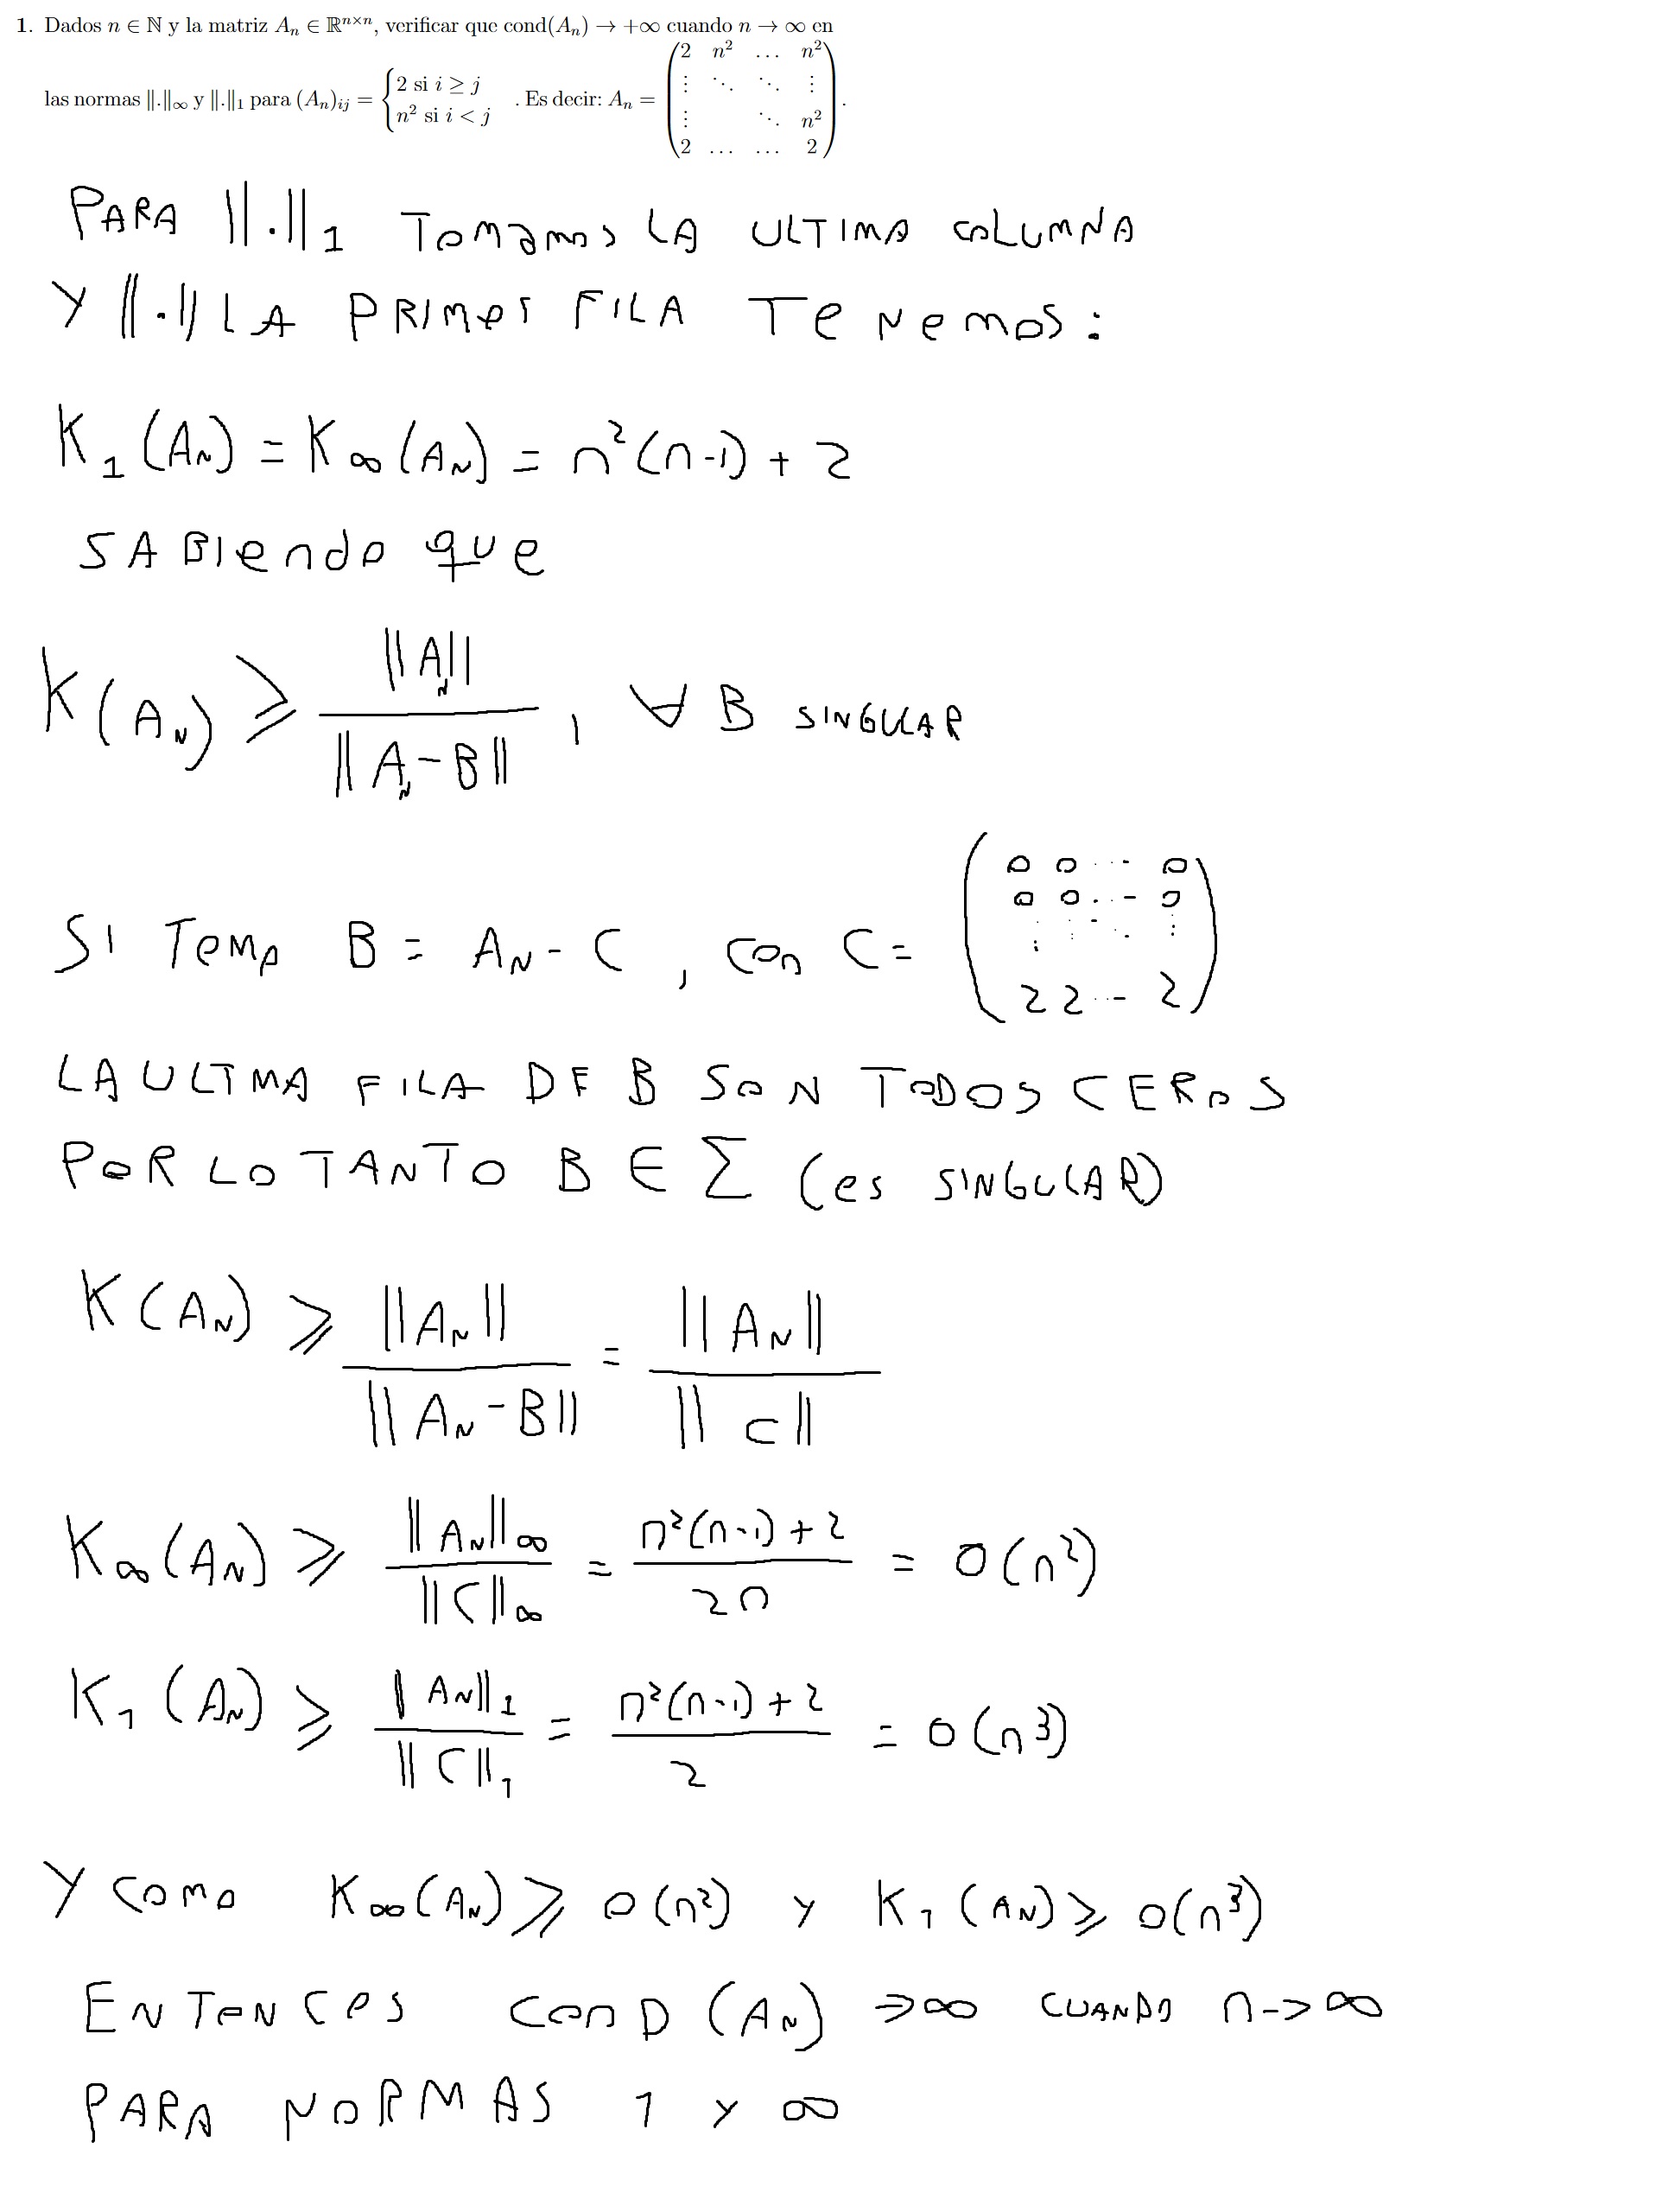 1. Dados n ∈ ℕ y la matriz Aₙ ∈ ℝⁿˣⁿ, verificar que cond(Aₙ) → +∞ cuando n → ∞ en
las normas ‖.‖∞ y ‖.‖₁ para (Aₙ)ᵢⱼ = { 2 si i ≥ j ; n² si i < j . Es decir: Aₙ = ( 2 n² … n² ; ⋮ ⋱ ⋱ ⋮ ; ⋮ ⋱ n² ; 2 … … 2 ).
PARA ||.||₁ TOMAMOS LA ULTIMA COLUMNA
Y ||.|| LA PRIMER FILA TENEMOS:
K₁(A_N) = K∞(A_N) = n²(n-1) + 2
SABIENDO QUE
K(A_N) ≥ ||A_N|| / ||A_N - B|| , ∀ B SINGULAR
SI TOMO B = A_N - C , CON C = ( 0 0 ... 0 ; 0 0 ... 0 ; ⋮ ⋱ ⋮ ; 2 2 ... 2 )
LA ULTIMA FILA DE B SON TODOS CEROS
POR LO TANTO B ∈ Σ (es SINGULAR)
K(A_N) ≥ ||A_N|| / ||A_N - B|| = ||A_N|| / ||C||
K∞(A_N) ≥ ||A_N||∞ / ||C||∞ = (n²(n-1) + 2) / 2n = O(n²)
K₁(A_N) ≥ ||A_N||₁ / ||C||₁ = (n²(n-1) + 2) / 2 = O(n³)
Y COMO K∞(A_N) ≥ O(n²) Y K₁(A_N) ≥ O(n³)
ENTONCES COND(A_N) → ∞ CUANDO n → ∞
PARA NORMAS 1 Y ∞